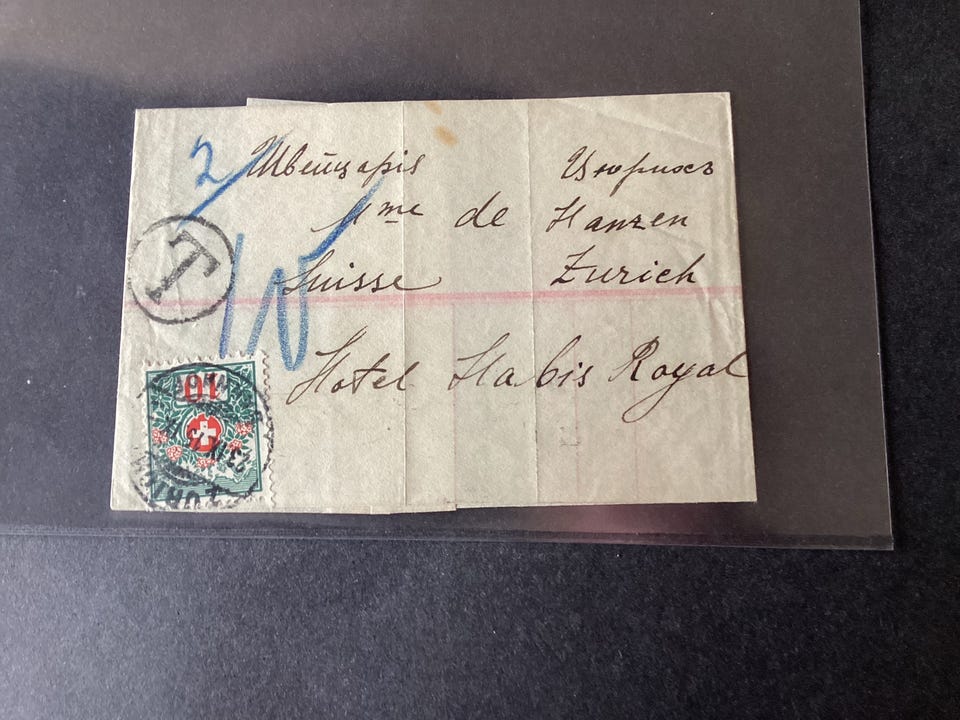 2
Швейцарія Цюрихъ
Mme de Hanzen
T
Suisse Zurich
10
Hotel Habis Royal
10